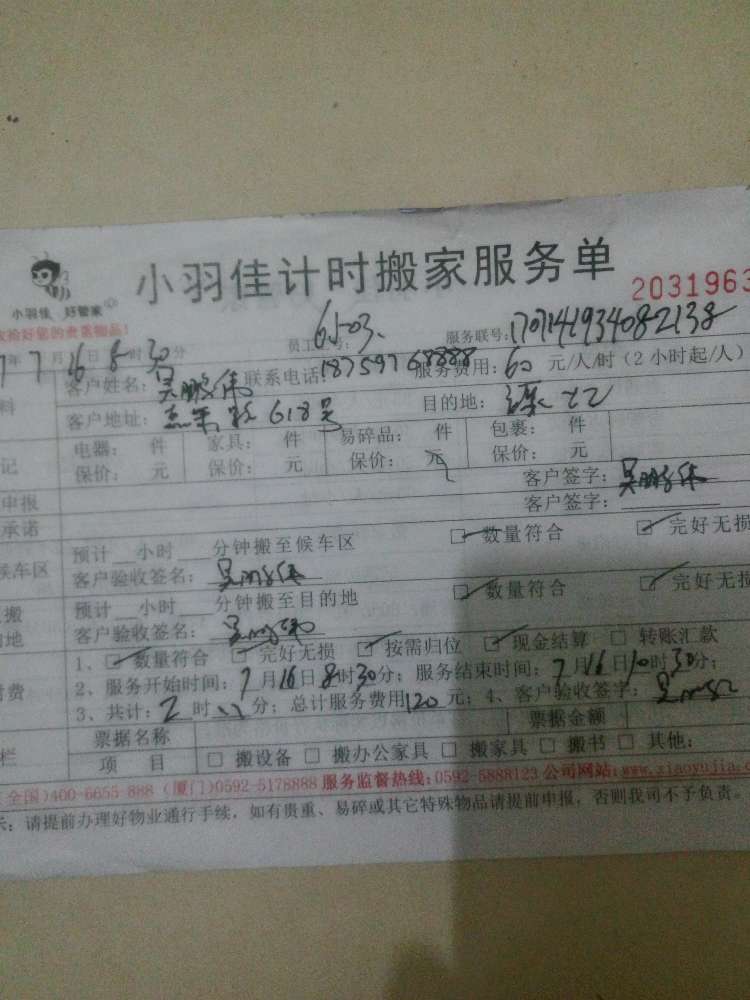 小羽佳计时搬家服务单
小羽佳 好管家
2031963
您的贵重物品!
7年7月16日8时30分 员工 号: 6503 服务联号: 1707141934082138
客户姓名: 吴鹏伟 联系电话: 18759768888 服务费用: 60 元/人/时(2小时起/人)
客户地址: 618号 目的地:
电器: 件 家具: 件 易碎品: 件 包裹: 件
保价: 元 保价: 元 保价: 元 保价: 元
客户签字: 吴鹏伟
申报 客户签字:
承诺
预计 小时 分钟搬至候车区 数量符合 完好无损
候车区 客户验收签名: 吴鹏伟
预计 小时 分钟搬至目的地 数量符合 完好无损
客户验收签名: 吴鹏伟
1、数量符合 完好无损 按需归位 现金结算 转账汇款
2、服务开始时间: 7月16日8时30分; 服务结束时间: 7月16日10时30分;
3、共计: 2时 分; 总计服务费用120元; 4、客户验收签字:
票据名称 票据金额
项 目 搬设备 搬办公家具 搬家具 搬书 其他:
全国)400-6655-888 (厦门)0592-5178888 服务监督热线:0592-5888123 公司网站:www.xiaoyujia.c
示: 请提前办理好物业通行手续, 如有贵重、易碎或其它特殊物品请提前申报, 否则我司不予负责。